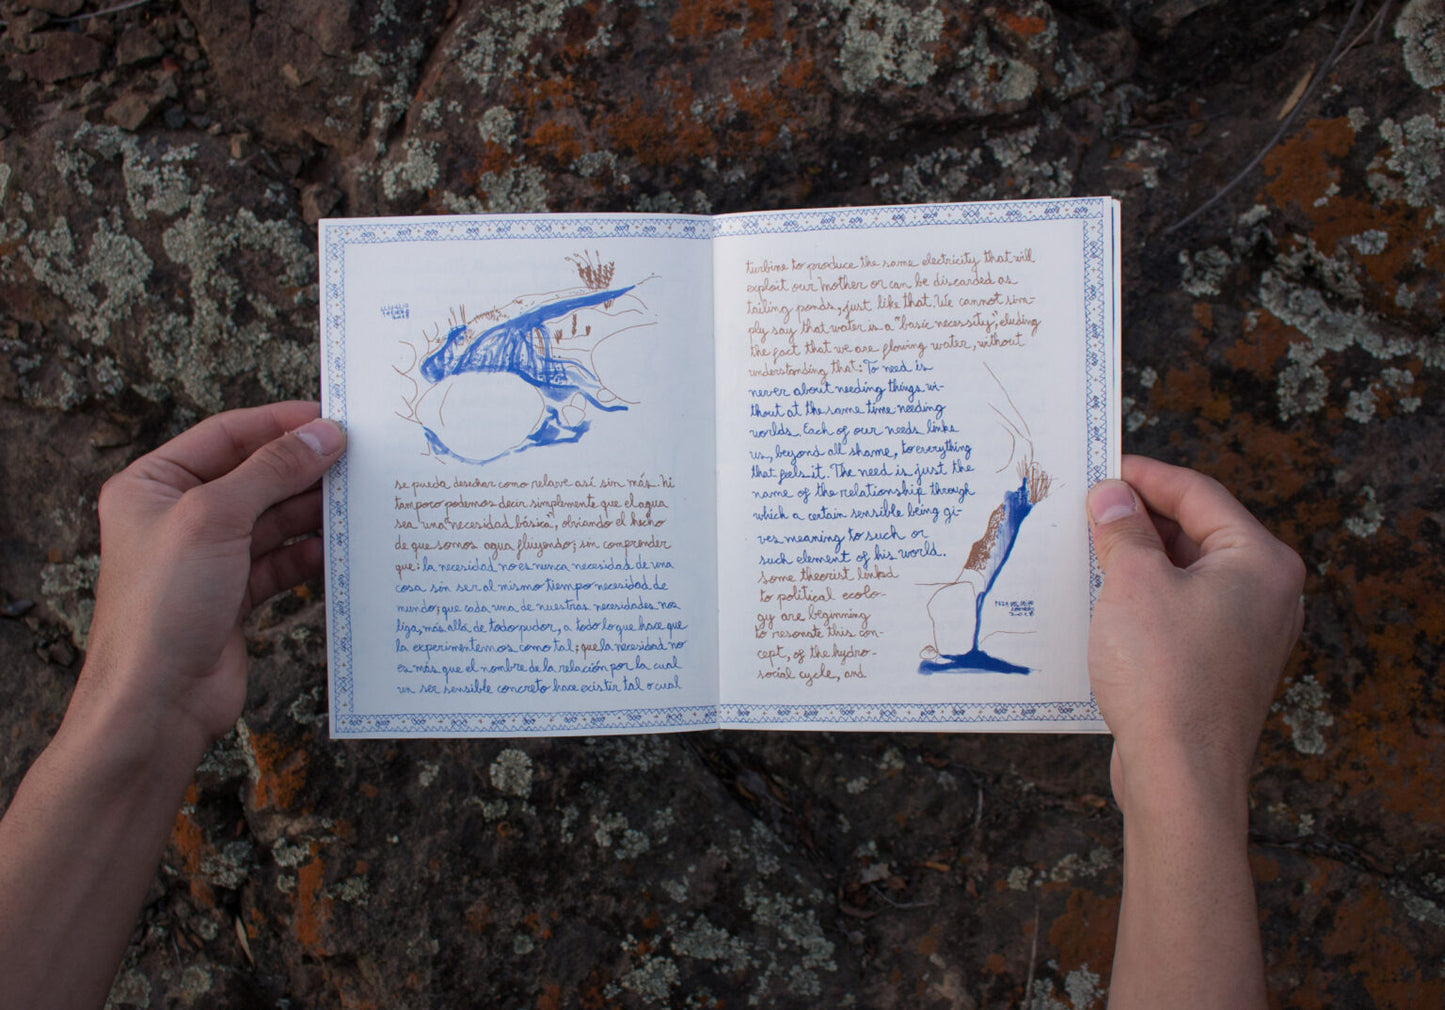 se pueda desechar como relave así sin más. Ni
tampoco podemos decir simplemente que el agua
sea una "necesidad básica", obviando el hecho
de que somos agua fluyendo; sin comprender
que: la necesidad no es nunca necesidad de una
cosa sin ser al mismo tiempo necesidad de
mundo; que cada una de nuestras necesidades nos
liga, más allá de todo pudor, a todo lo que hace que
la experimentemos como tal; que la necesidad no
es más que el nombre de la relación por la cual
un ser sensible concreto hace existir tal o cual
turbine to produce the same electricity that will
exploit our Mother or can be discarded as
tailing ponds, just like that. We cannot sim-
ply say that water is a "basic necessity", eluding
the fact that we are flowing water, without
understanding that: To need is
never about needing things wi-
thout at the same time needing
worlds. Each of our needs links
us, beyond all shame, to everything
that feels it. The need is just the
name of the relationship through
which a certain sensible being gi-
ves meaning to such or
such element of his world.
Some theorist linked
to political ecolo-
gy are beginning
to resonate this con-
cept, of the hydro-
social cycle, and